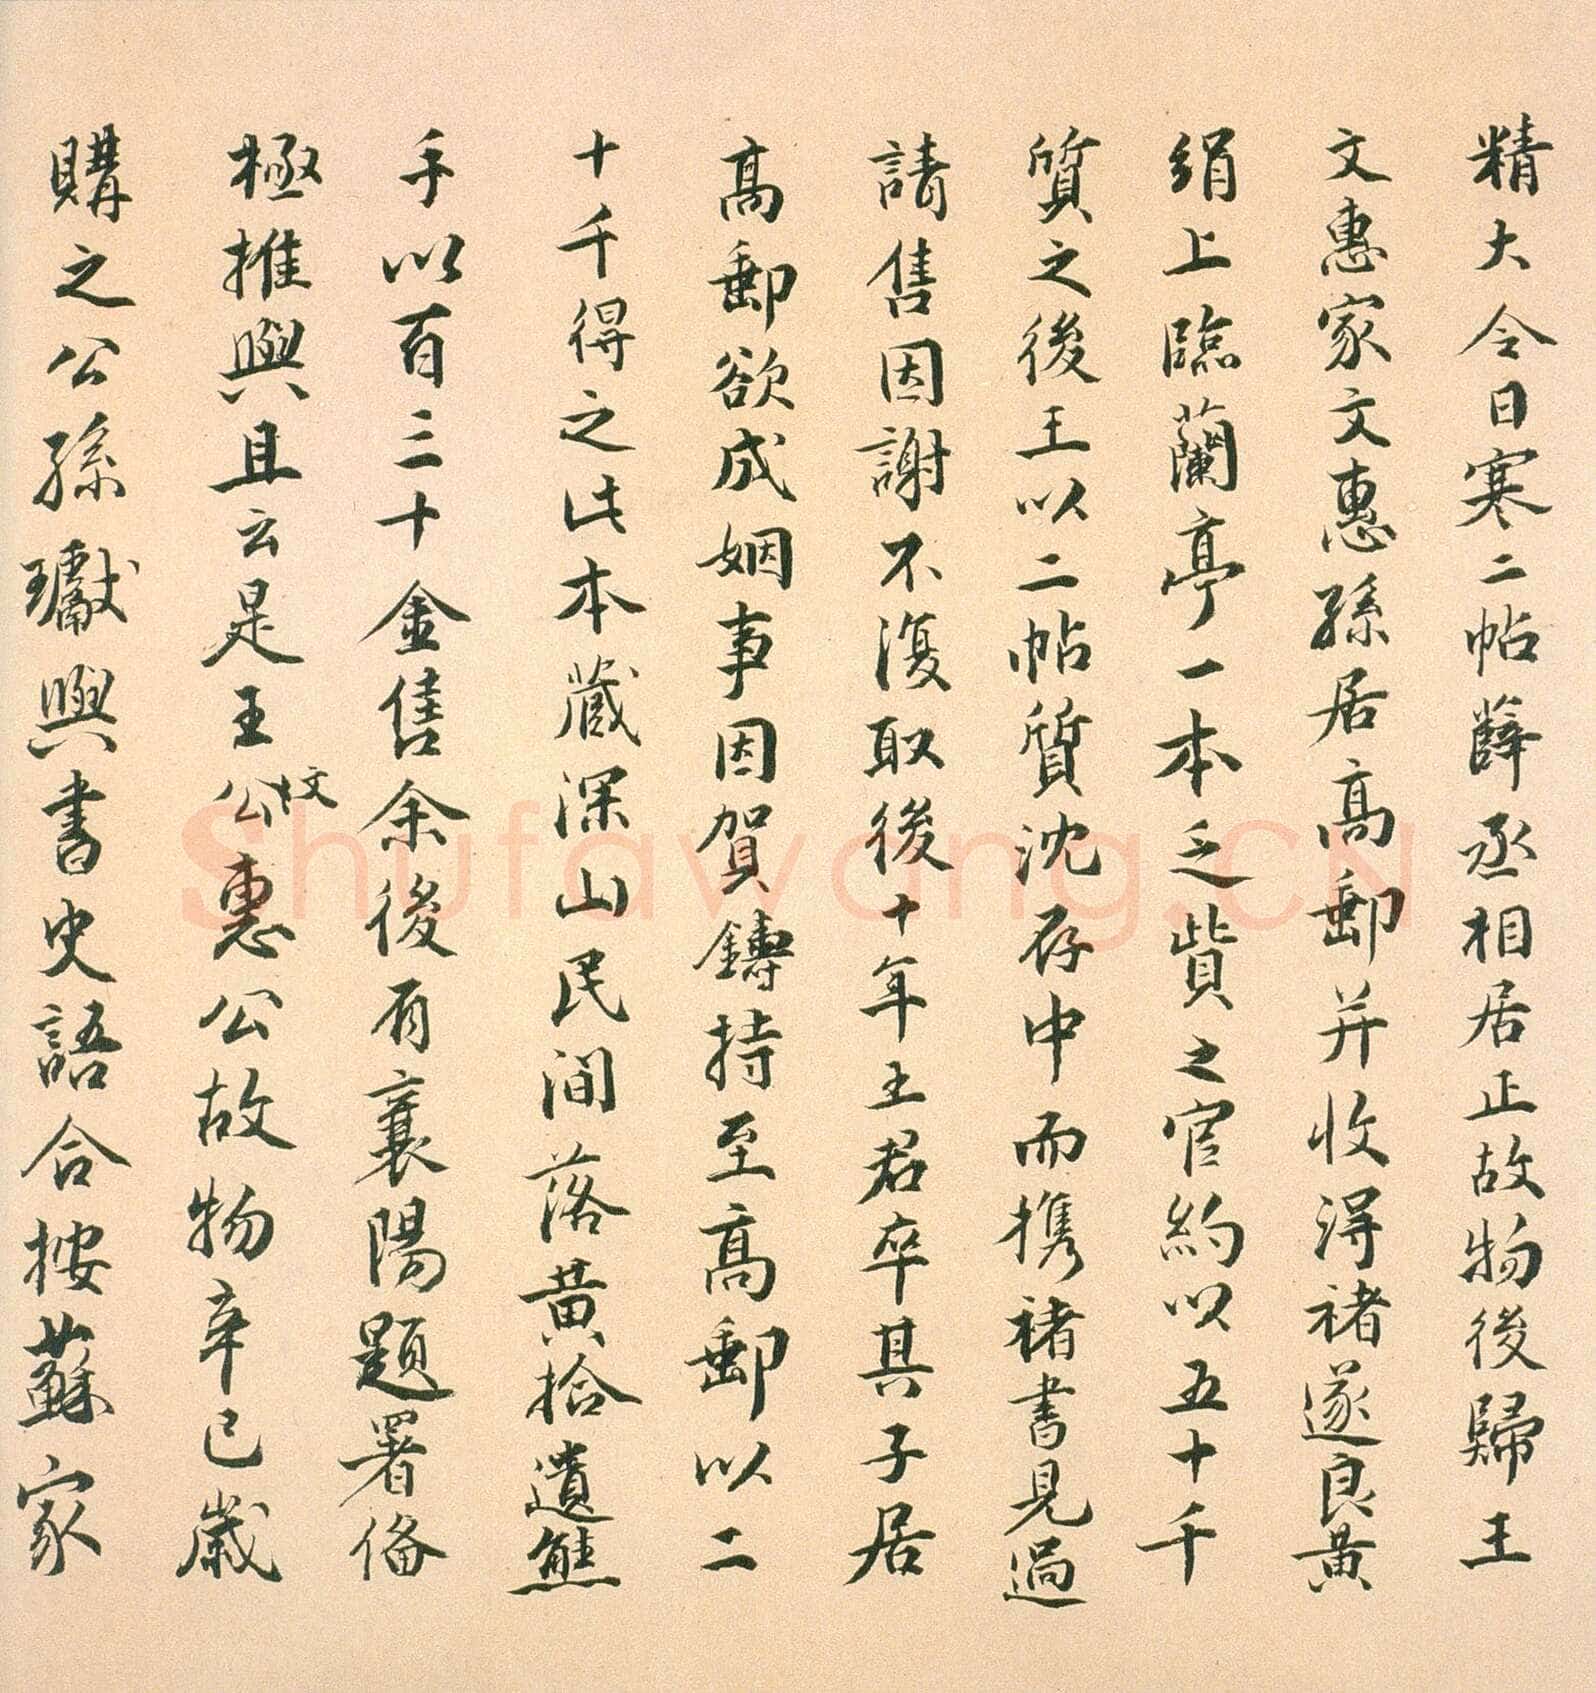 精大令日寒二帖薛丞相居正故物後歸王
文惠家文惠孫居高郵并收得褚遂良黄
絹上臨蘭亭一本乏貲之官約以五十千
質之後王以二帖質沈存中而携褚書見過
請售因謝不復取後十年王君卒其子居
高郵欲成姻事因賀鑄持至高郵以二
十千得之此本藏深山民間落黄拾遺熊
手以百三十金售余後有襄陽題署俻
極推與且云是王公文惠公故物辛巳歳
購之公孫瓛與書史語合按蘇家
Shufawang.CN